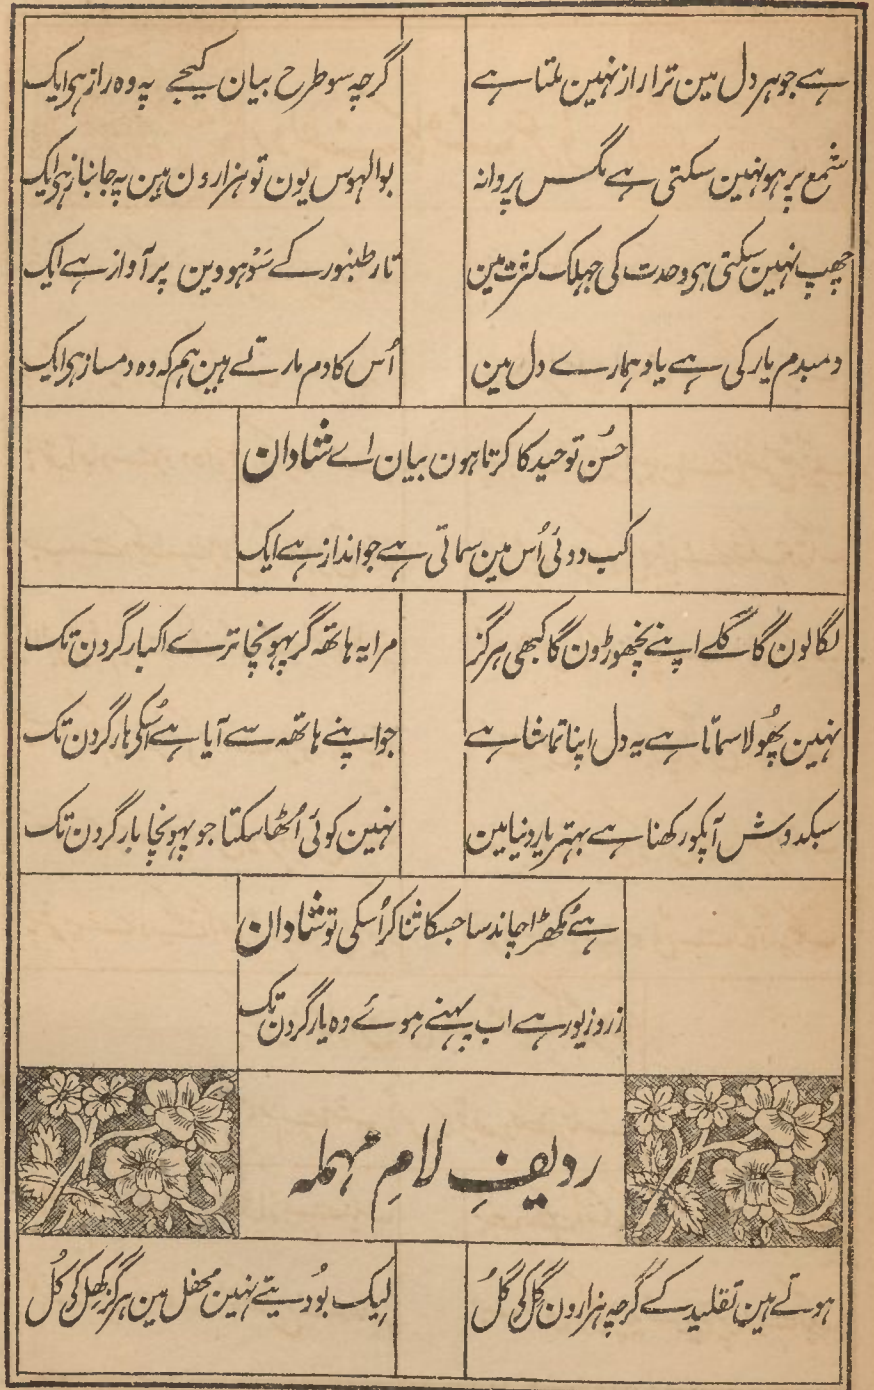 ہے جو ہر دل مین ترا راز نہین ملتا ہے
گرچہ سو طرح بیان کیجے پہ وہ راز ہی ایک
شمع پر ہو نہین سکتی ہے مگس پروانہ
بوالہوس یون تو ہزارون ہین پہ جانباز ہی ایک
چھپ نہین سکتی ہی وحدت کی جہلک کثرت مین
تار طنبور کے سَو ہووین پر آواز ہے ایک
دمبدم یار کی ہے یاد ہمارے دل مین
اُس کا دم مارتے ہین ہم کہ وہ دمساز ہی ایک
حُسن توحید کا کرتا ہون بیان اے شادان
کب دوئی اُس مین سماتی ہے جو انداز ہے ایک
لگا لون گا گلے اپنے نچھوڑون گا کبھی ہرگز
مرا یہ ہاتھہ گر پہونچا ترے اکبار گردن تک
نہین پھُولا سماتا ہے یہ دل اپنا تماشا ہے
جو اپنے ہاتھہ سے آیا ہے اُسکی ہار گردن تک
سبکدوش آپکو رکھنا ہے بہتر یار دنیا مین
نہین کوئی اُٹھا سکتا جو پہونچا بار گردن تک
ہے مُکھڑا چاند سا جسکا ثنا کر اُسکی تو شادان
زر و زیور ہے اب پہنے ہوئے وہ یار گردن تک
ردیفِ لامِ مہملہ
ہوتے ہین تقلید کے گرچہ ہزارون گِل کی گُل
لیک بُو دیتے نہین محفل مین ہرگز کھِل کی گُل